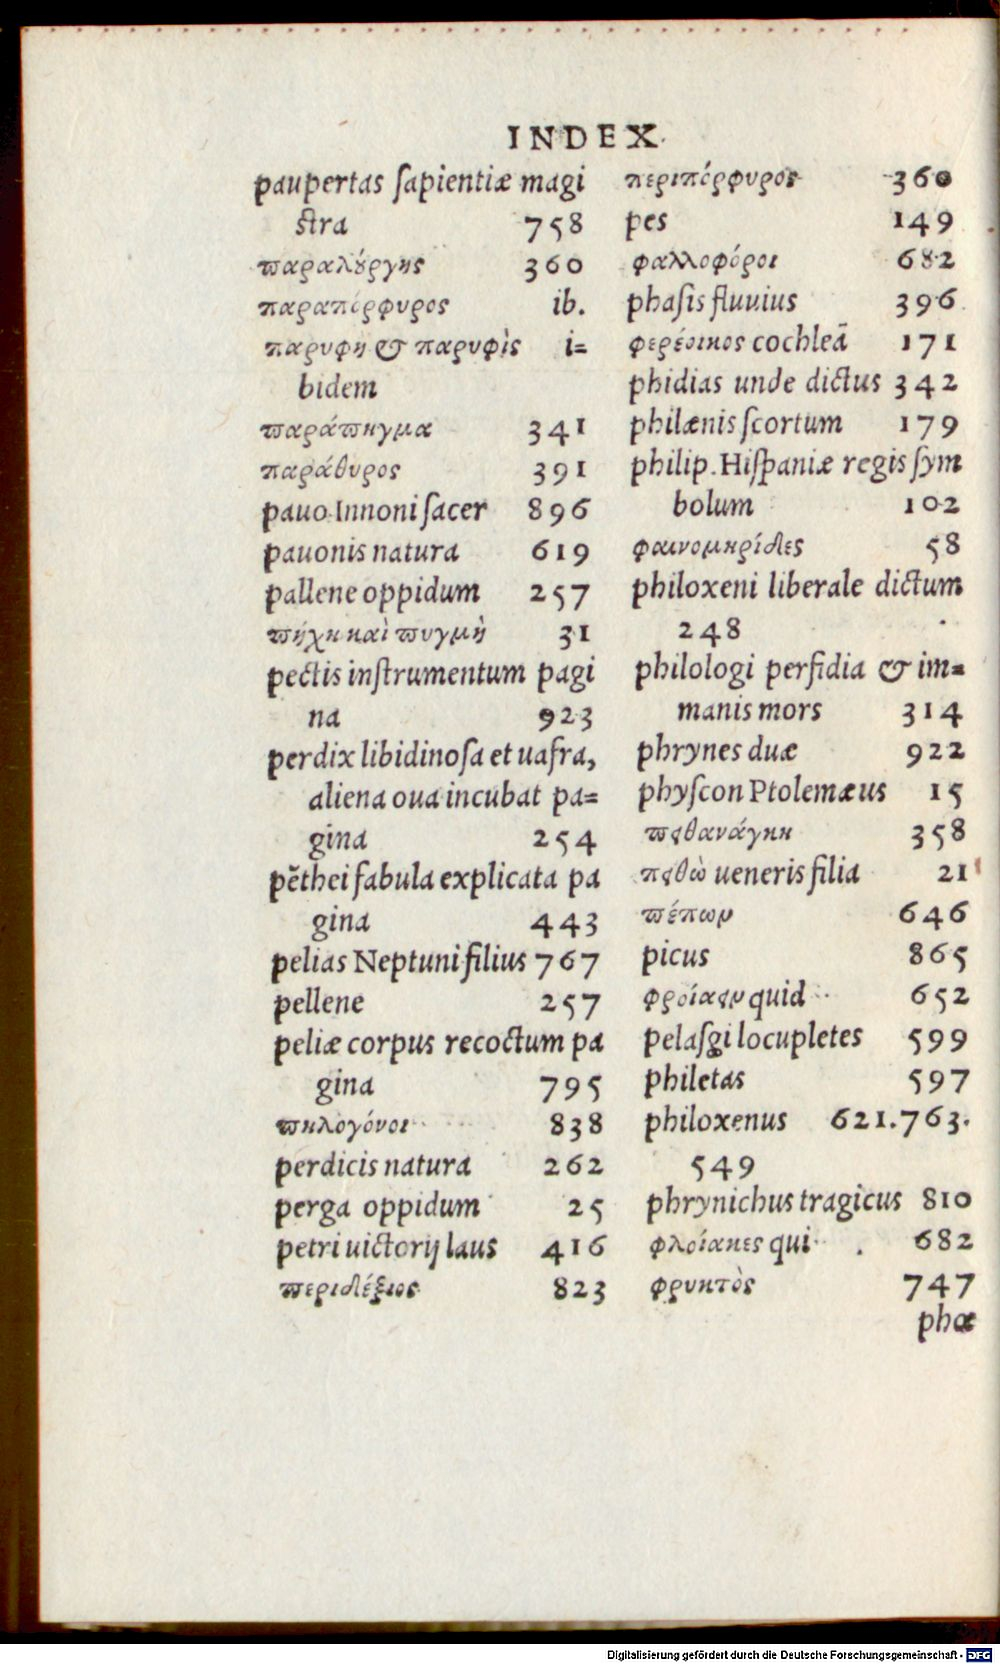 INDEX.
paupertas ſapientiæ magi
ſtra 758
παραλούργης 360
παραπόρφυρος ib.
παρυφὴ & παρυφὶς i=
bidem
παράπηγμα 341
παράθυρος 391
pauo Innoni ſacer 896
pauonis natura 619
pallene oppidum 257
πήχη καὶ πυγμὴ 31
pectis inſtrumentum pagi
na 923
perdix libidinoſa et uafra,
aliena oua incubat pa=
gina 254
pẽthei fabula explicata pa
gina 443
pelias Neptuni filius 767
pellene 257
peliæ corpus recoctum pa
gina 795
πηλογόνοι 838
perdicis natura 262
perga oppidum 25
petri uictorij laus 416
περιδέξιος 823
περιπόρφυρος 360
pes 149
φαλλοφόροι 682
phaſis fluuius 396
φερέοικος cochleā 171
phidias unde dictus 342
philænis ſcortum 179
philip. Hiſpaniæ regis ſym
bolum 102
φαινομηρίδες 58
philoxeni liberale dictum
248
philologi perfidia & im=
manis mors 314
phrynes duæ 922
phyſcon Ptolemæus 15
πειθανάγκη 358
πειθὼ ueneris filia 21
πέπων 646
picus 865
quid 652
pelaſgi locupletes 599
philetas 597
philoxenus 621.763.
549
phrynichus tragicus 810
φλοίακες qui 682
φρυκτὸς 747
phœ
Digitalisierung gefördert durch die Deutsche Forschungsgemeinschaft - DFG